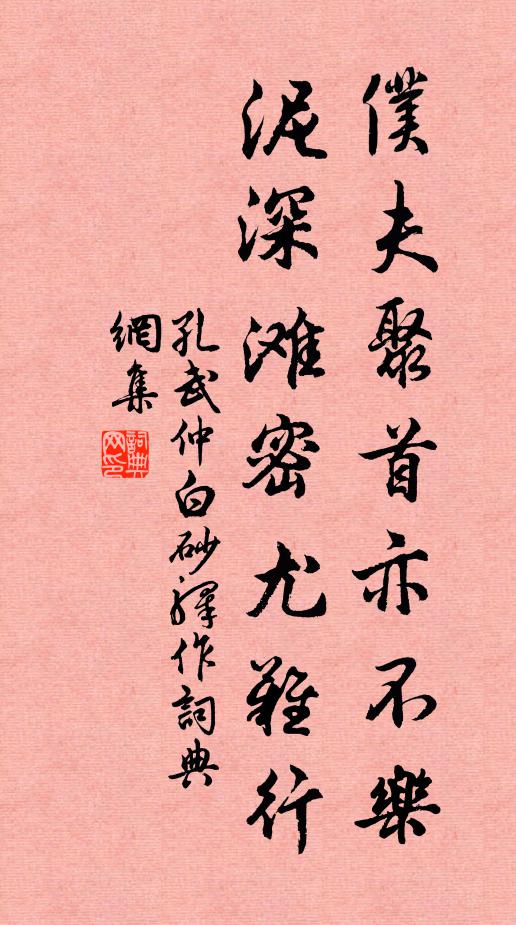 僕夫聚首亦不樂
泥深滩密尤難行
孔武仲白砂驛作詞典
網集
詞典網印